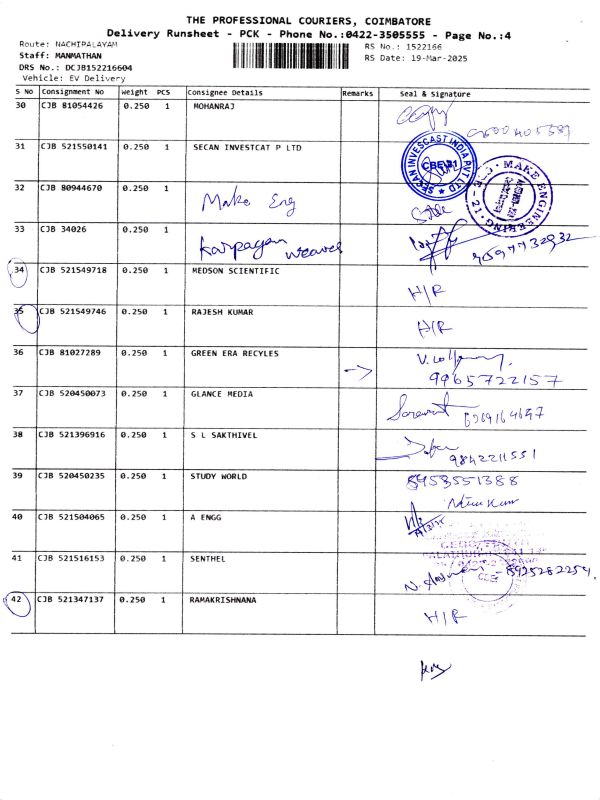 THE PROFESSIONAL COURIERS, COIMBATORE
Delivery Runsheet - PCK - Phone No.:0422-3505555 - Page No.:4
Route: NACHIPALAYAM RS No.: 1522166
Staff: MANMATHAN RS Date: 19-Mar-2025
DRS No.: DCJB152216604
Vehicle: EV Delivery
S No Consignment No Weight PCS Consignee Details Remarks Seal & Signature
30 CJB 81054426 0.250 1 MOHANRAJ
31 CJB 521550141 0.250 1 SECAN INVESTCAT P LTD
SECAN INVESCAST INDIA PVT LTD
CBE-21
32 CJB 80944670 0.250 1 Make Eng
MAKE ENGINEERING
33 CJB 34026 0.250 1 Karpagan weaves
34 CJB 521549718 0.250 1 MEDSON SCIENTIFIC H/R
35 CJB 521549746 0.250 1 RAJESH KUMAR H/R
36 CJB 81027289 0.250 1 GREEN ERA RECYLES
9965722157
37 CJB 520450073 0.250 1 GLANCE MEDIA
38 CJB 521396916 0.250 1 S L SAKTHIVEL 9842211551
39 CJB 520450235 0.250 1 STUDY WORLD 8953551388
40 CJB 521504065 0.250 1 A ENGG
41 CJB 521516153 0.250 1 SENTHEL 8925282254
42 CJB 521347137 0.250 1 RAMAKRISHNANA H/R